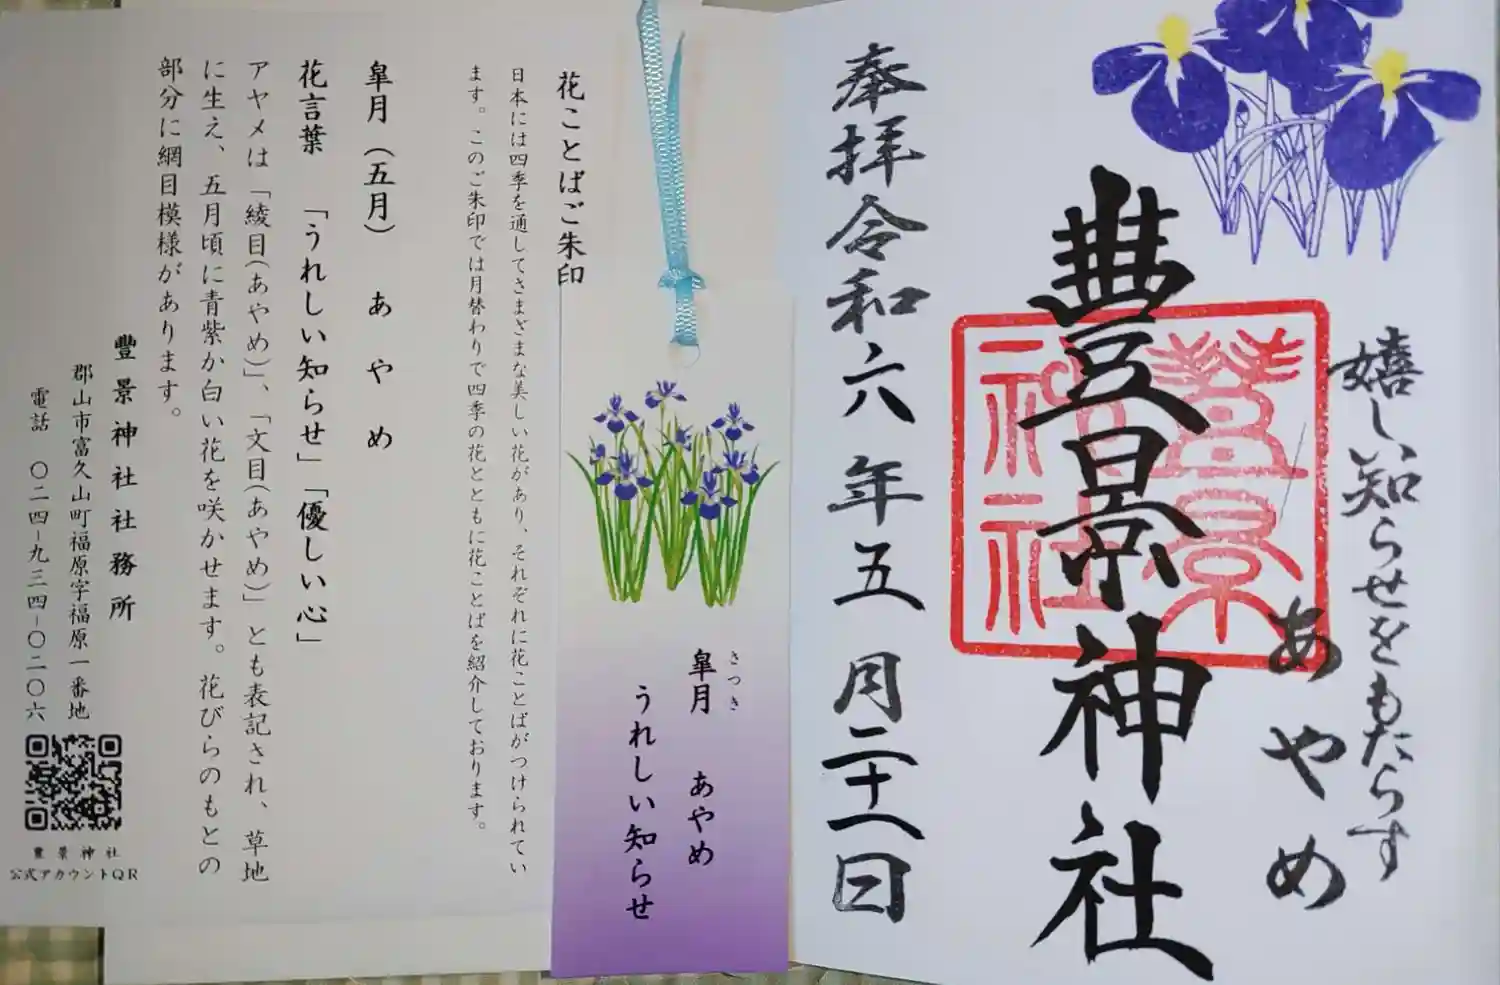 嬉しい知らせをもたらす
あやめ
豊景神社
豊景
神社
奉拝令和六年五月二十八日
さつき
皐月 あやめ
うれしい知らせ
花ことばご朱印
日本には四季を通してさまざまな美しい花があり、それぞれに花ことばがつけられてい
ます。このご朱印では月替わりで四季の花とともに花ことばを紹介しております。
皐月(五月) あやめ
花言葉 「うれしい知らせ」「優しい心」
アヤメは「綾目(あやめ)」、「文目(あやめ)」とも表記され、草地
に生え、五月頃に青紫か白い花を咲かせます。花びらのもとの
部分に網目模様があります。
豊景神社社務所
郡山市富久山町福原字福原一番地
電話 〇二四-九三四-〇二〇六
豊景神社
公式アカウントQR